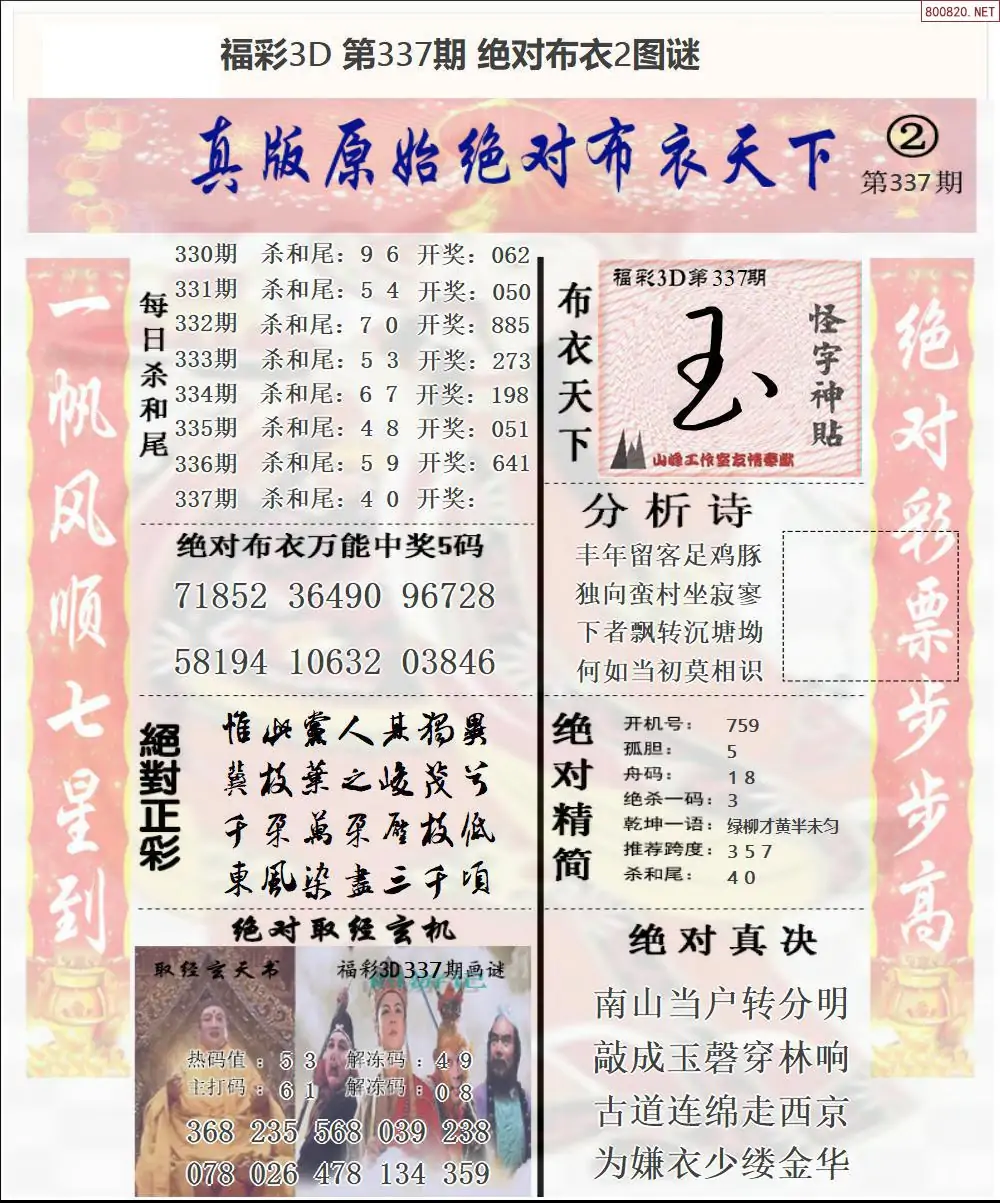 800820.NET
福彩3D 第337期 绝对布衣2图谜
真版原始绝对布衣天下
②
第337期
一帆风顺七星到
每日杀和尾
330期 杀和尾：9 6 开奖：062
331期 杀和尾：5 4 开奖：050
332期 杀和尾：7 0 开奖：885
333期 杀和尾：5 3 开奖：273
334期 杀和尾：6 7 开奖：198
335期 杀和尾：4 8 开奖：051
336期 杀和尾：5 9 开奖：641
337期 杀和尾：4 0 开奖：
绝对布衣万能中奖5码
71852 36490 96728
58194 10632 03846
絕對正彩
惟此黨人其獨異
冀枝葉之峻茂兮
千朵萬朵壓枝低
東風染盡三千頃
绝对取经玄机
取经玄天书
福彩3D337期画谜
热码值：5 3 解冻码：4 9
主打码：6 1 解冻码：0 8
368 235 568 039 238
078 026 478 134 359
布衣天下
福彩3D第337期
玉
怪字神貼
山峰工作室友情奉献
分析诗
丰年留客足鸡豚
独向蛮村坐寂寥
下者飘转沉塘坳
何如当初莫相识
绝对精简
开机号： 759
孤胆： 5
舟码： 1 8
绝杀一码：3
乾坤一语：绿柳才黄半未匀
推荐跨度：3 5 7
杀和尾： 4 0
绝对真决
南山当户转分明
敲成玉磬穿林响
古道连绵走西京
为嫌衣少缕金华
绝对彩票步步高